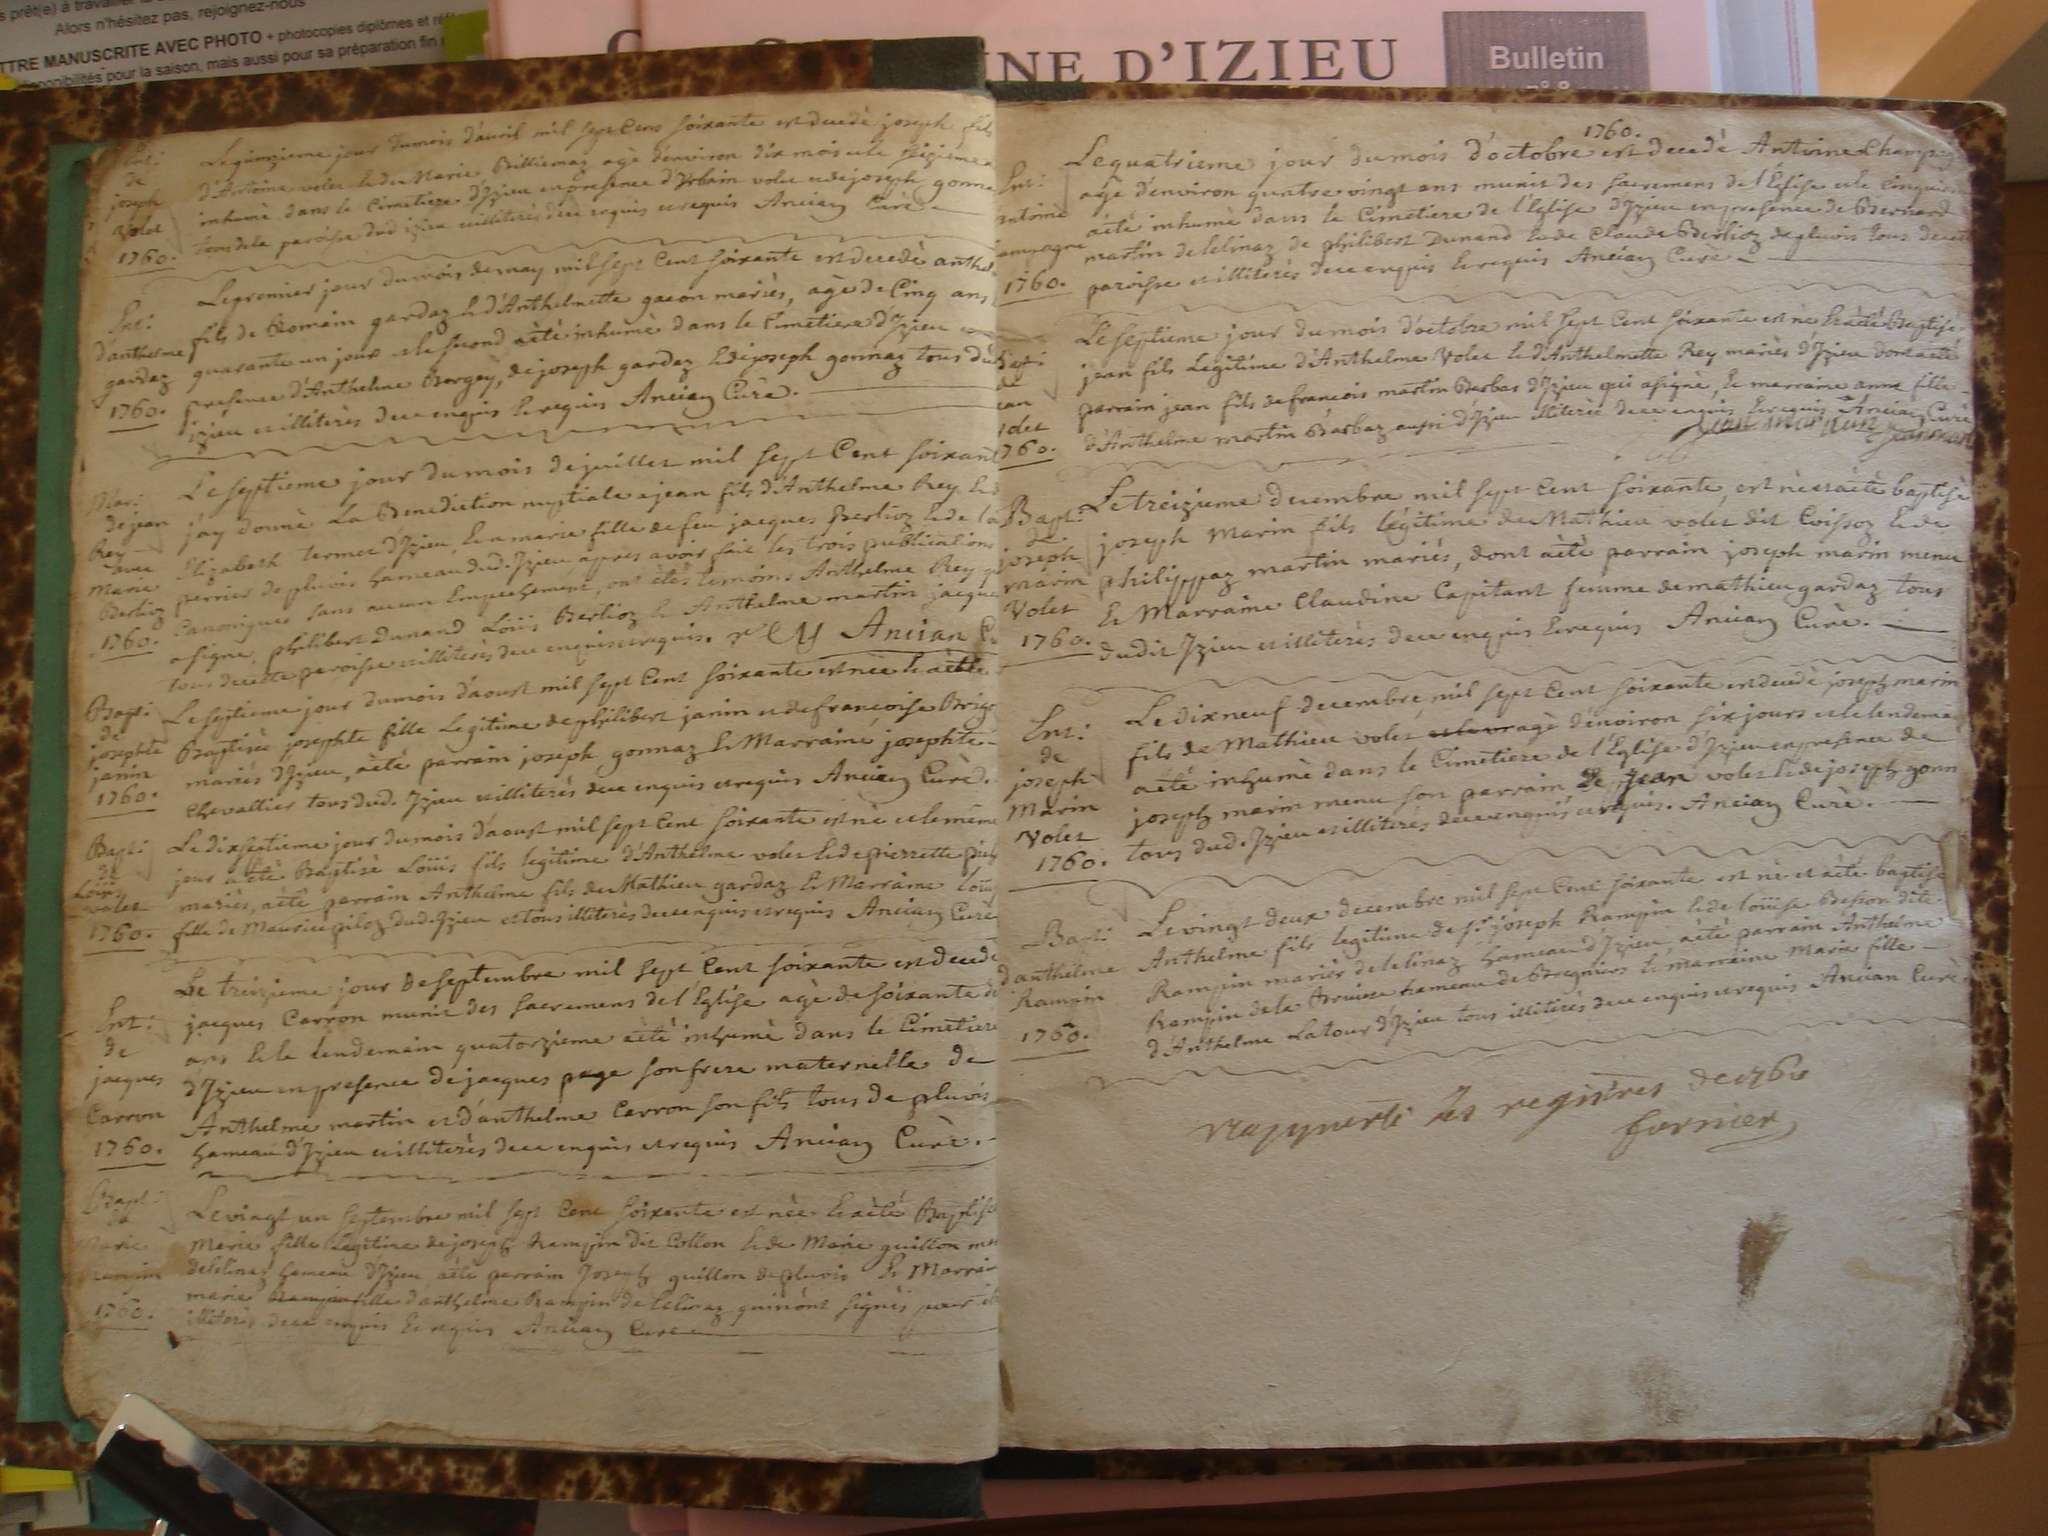 s prêt(e) à travailler
Alors n'hésitez pas, rejoignez-nous
TTRE MANUSCRITE AVEC PHOTO + photocopies diplômes et
disponibilités pour la saison, mais aussi pour sa préparation fin
NNE D'IZIEU
Bulletin
Ent:
de
joseph
Volet
1760.
Le quinzieme jour du mois d'avril mil sept Cens soixante est decedè joseph fils
d'Antoine volet & de Marie Billiemaz agè d'environ dix mois et le seizieme a
inhumè dans le Cimetiere d'Izieu en presence d'Urbain volet et de joseph gonna
tous de la paroisse dud izieu et illiterès de ce enquis et requis Ancian Curè
Ent:
d'anthelme
gardaz
1760.
Le premier jour du mois de may mil sept Cent soixante est decedè anthel
fils de Romain gardaz & d'Anthelmette gacon mariès, agè de Cinq ans
quarante un jour et le second aètè inhumè dans le Cimetiere d'Izieu en
presence d'Anthelme Borgey, de joseph gardaz & de joseph gonnaz tous dud
izieu et illiterès de ce enquis & requis Ancian Curè.
Mar:
de jean
Rey
avec
Marie
Berlioz
1760.
Le septieme jour du mois de juillet mil sept Cent soixant
j'ay donnè La Benediction nuptiale a jean fils d'Anthelme Rey & d
Elizabeth termet d'Izieu, & a marie fille de feu jacques Berlioz & de la
perrier de pluvis hameau dud. Izieu apres avoir fait les trois publications
Canoniques sans aucun Empechement, ont ètès temoins Anthelme Rey q
a signe, philibert Dunand Loüis Berlioz & Anthelme martin jacque
tous de cette paroisse et illiterès de ce enquis et requis. Ancian Cu
Bapt:
de
josephte
janin
1760.
Le septieme jour du mois d'aoust mil sept Cent soixante est nèe & aètè
Baptisèe josephte fille Legitime de philibert janin et de francoise Brigo
mariès d'Izieu, aètè parrain joseph gonnaz & Marraine josephte
Chevallier tous dud. Izieu et illiterès de ce enquis et requis Ancian Curè.
Bapt:
de
Loüis
volet
1760.
Le dixseptieme jour du mois d'aoust mil sept Cent soixante est nè et le mème
jour a ètè Baptisè Loüis fils legitime d'Anthelme volet & de pierrette
mariès, aètè parrain Anthelme fils de Mathieu gardaz & Marraine Loüi
fille de Maurice piloz dud. Izieu et tous illiterès de ce enquis et requis Ancian Curè
Ent:
de
jacques
Carron
1760.
Le treizieme jour de septembre mil sept Cent soixante est decedè
jacques Carron munit des sacremens de l'Eglise agè de soixante
ans & le lendemain quatorzieme aètè inhumè dans le Cimetiere
d'Izieu en presence de jacques page son frere maternelle de
Anthelme martin et d'anthelme Carron son fils tous de pluvis
hameau d'Izieu et illiterès de ce enquis et requis Ancian Curè.
Bapt:
de
Marie
1760.
Le vingt un septembre mil sept Cent soixante est nèe & aètè Baptisè
Marie fille Legitime de joseph Rampin dit Collon & de Marie guillon ma
de lelinaz hameau d'Izieu aètè parrain Joseph guillon de pluvis & Marrai
marie fille d'anthelme Rampin de lelinaz qui n'ont signès pour
illiterès de ce enquis & requis Ancian Curè
1760.
Ent:
antoine
ampagne
1760.
Le quatrieme jour du mois d'octobre est decedè Antoine Champag
agè d'environ quatre vingt ans munit des sacremens de l'Eglise et le Cinquie
aètè inhumè dans le Cimetiere de l'Eglise d'Izieu en presence de Bernard
martin de lelinaz de philibert Dunand & de Claude Berlioz de pluvis tous de cette
paroisse et illiterès de ce enquis & requis Ancian Curè
Bapt:
de
ean
olet
760.
Le septieme jour du mois d'octobre mil sept Cent soixante est nè & aètè Baptise
jean fils Legitime d'Anthelme Volet & d'Anthelmette Rey mariès d'Izieu dont aètè
parrain jean fils de francois martin Barbaz d'Izieu qui a signè, & marraine anne fille
d'Anthelme martin Barbaz aussi d'Izieu illiterèe de ce enquis & requis Ancian Curè
Bapt:
de
joseph
marin
Volet
1760.
Le treizieme decembre mil sept Cent soixante, est nè et aètè baptisè
joseph Marin fils lègitime de Mathieu volet dit Coissoz & de
philippaz martin mariès, dont aètè parrain joseph marin menu
& Marraine Claudine Capitant femme de mathieu gardaz tous
dudit Izieu et illiterès de ce enquis & requis Ancian Curè.
Ent:
de
joseph
Marin
Volet
1760.
Le dixneuf decembre mil sept Cent soixante est decedè joseph marin
fils de Mathieu volet agè d'environ six jours et le lendema
aètè inhumè dans le Cimetiere de l'Eglise d'Izieu en presence de
joseph marin menu son parrain de Jean volet & de joseph gonn
tous dud. Izieu et illiteres de ce enquis et requis. Ancian Curè.
Bapt:
d'anthelme
Rampin
1760.
Le vingt deux decembre mil sept Cent soixante est nè et aètè baptise
Anthelme fils legitime de Sr joseph Rampin & de loüise Besson dite
Rampin mariès de lelinaz hameau d'Izieu, aètè parrain Anthelme
Rampin de la Bruiere hameau de Bregniers & marraine Marie fille
d'Anthelme Latour d'Izieu tous illiterès de ce enquis et requis Ancian Curè
registres de 1760